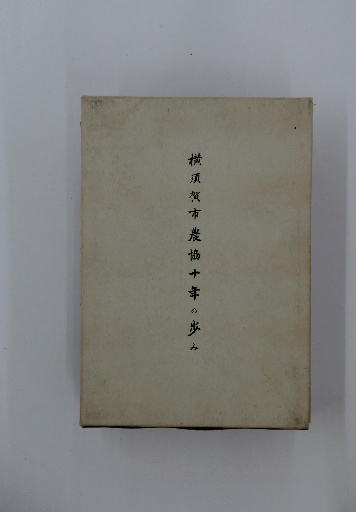 横須賀市農協十年の歩み